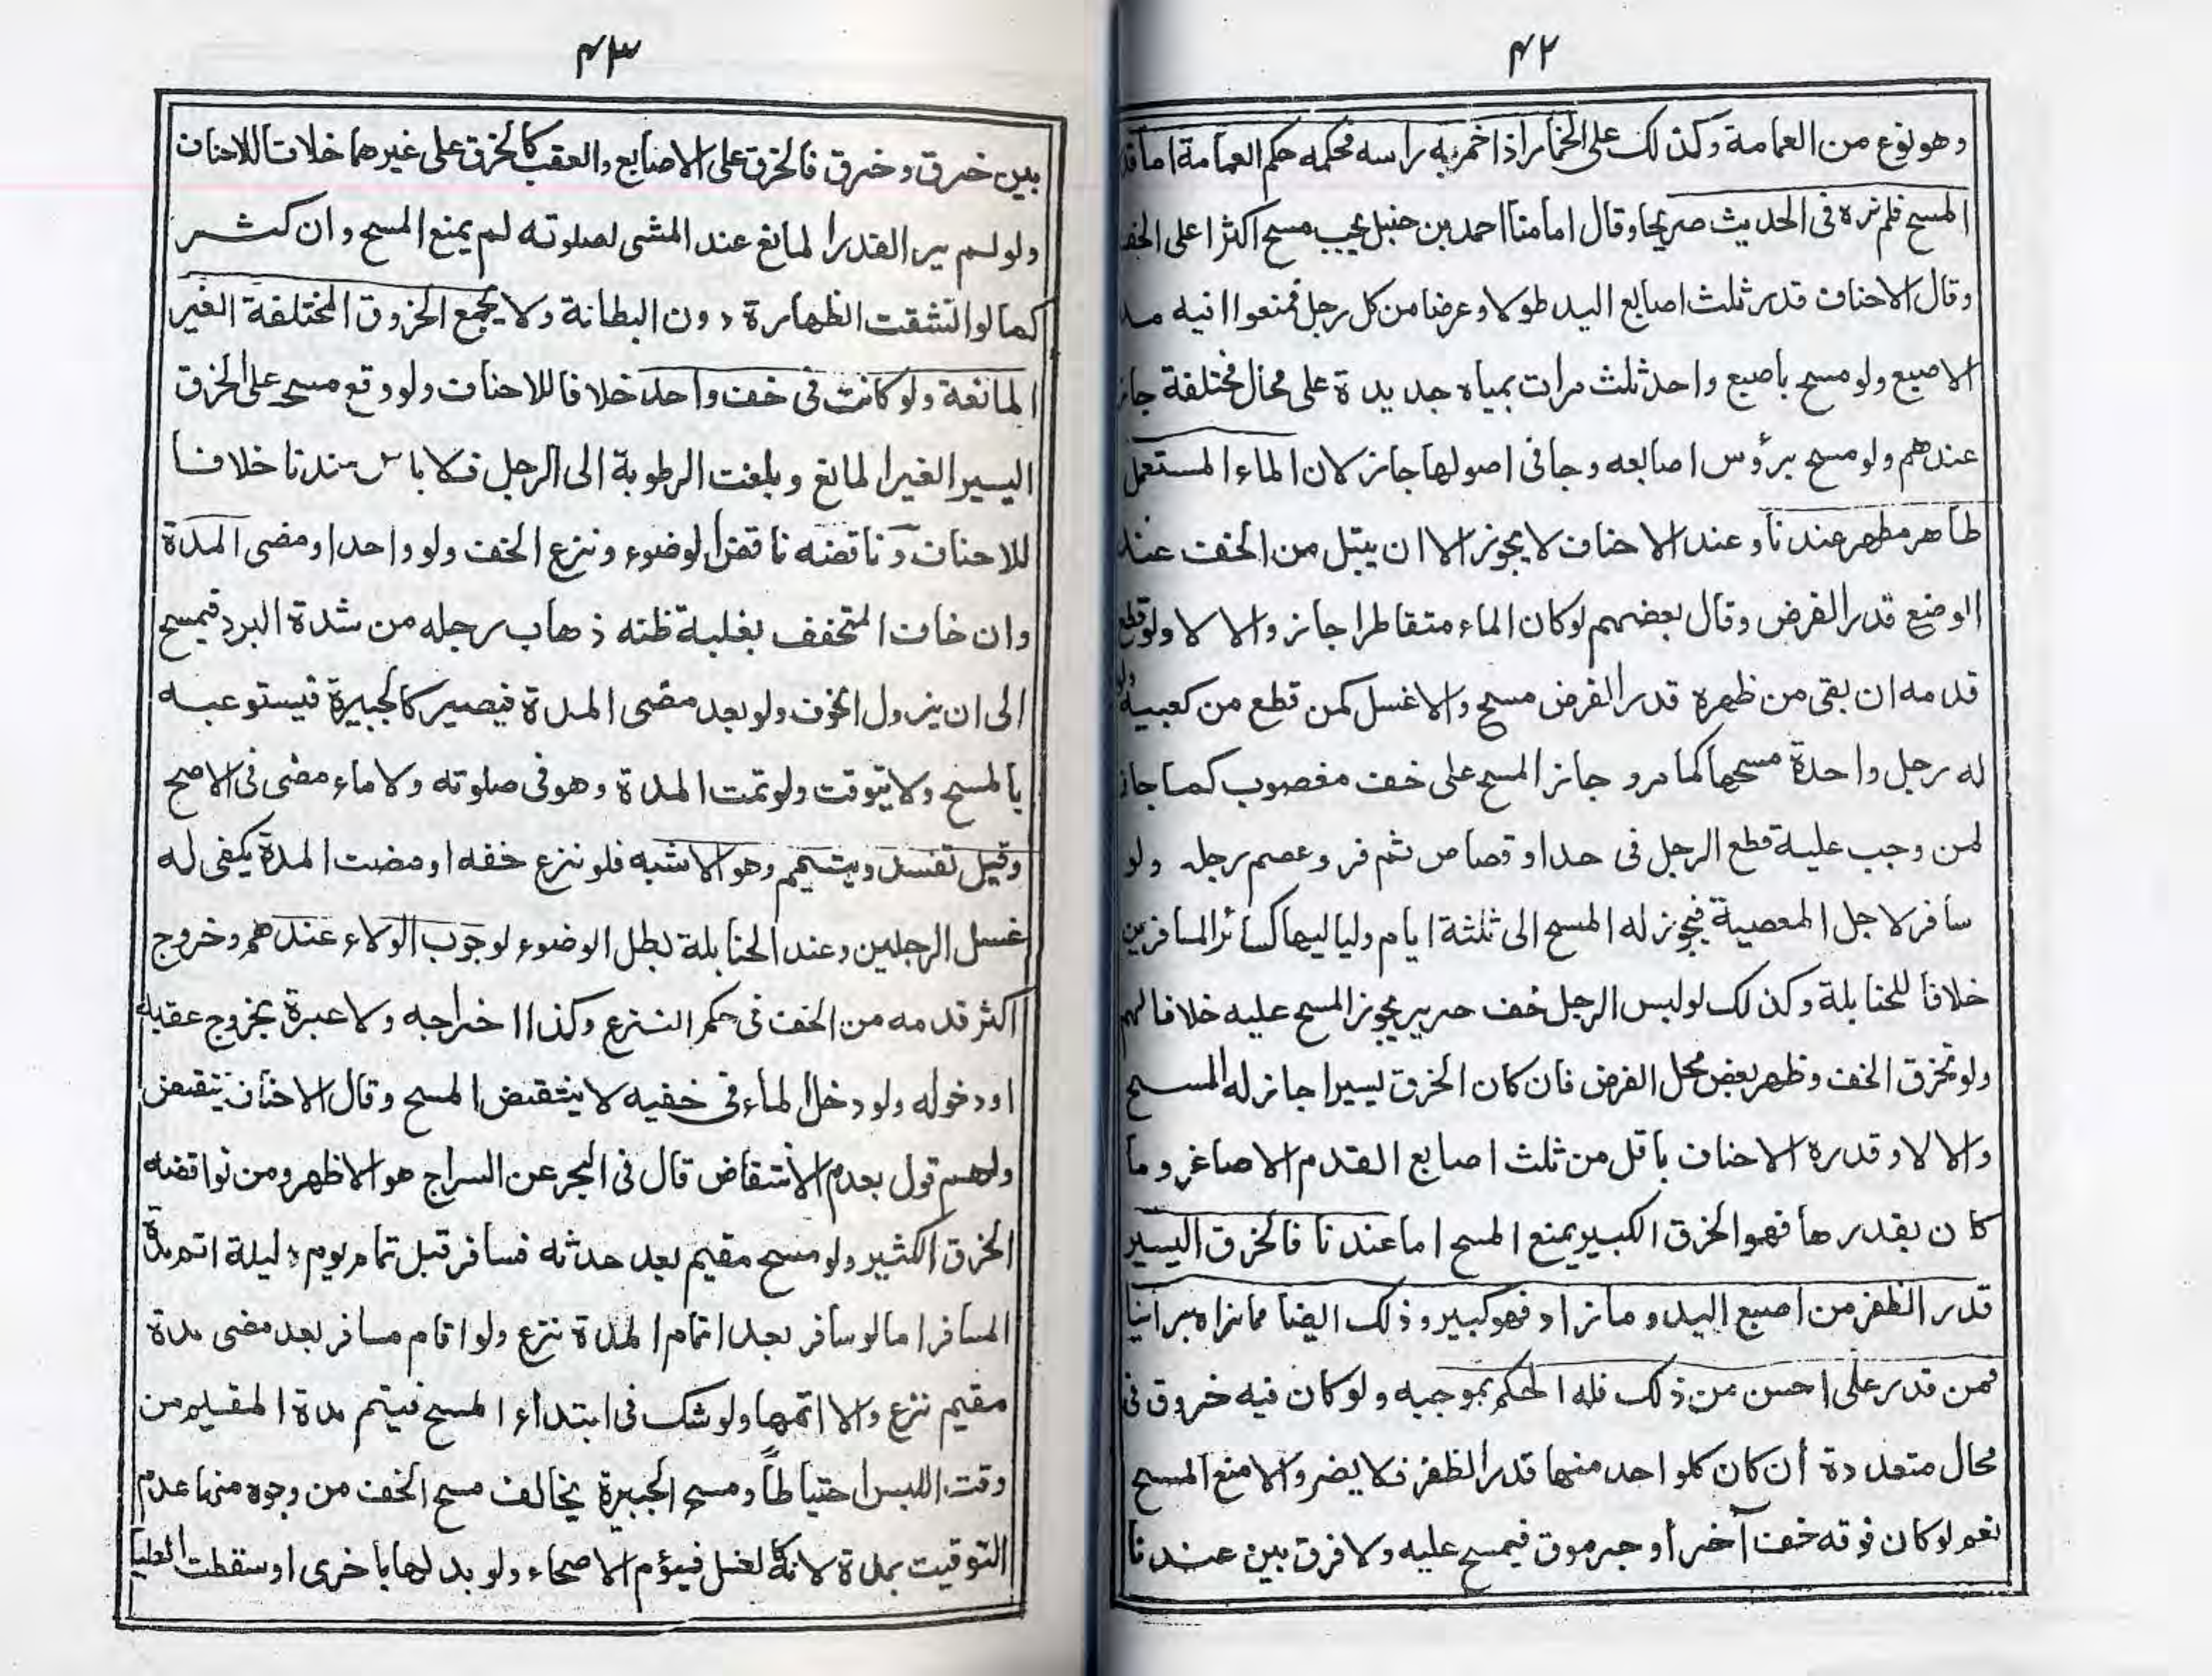 ٤٢
وهو نوع من العمامة وكذلك على الخمار اذا خمر به راسه فحكمه حكم العمامة اما قدر
المسح فلم نره فى الحديث صريحا وقال امامنا احمد بن حنبل يجب مسح اكثر اعلى الخف
وقال الاحناف قدر ثلث اصابع اليد طولا وعرضا من كل رجل فمنعوا فيه مد
الاصبع ولو مسح باصبع واحد ثلث مرات بمياه جديدة على محال مختلفة جاز
عندهم ولو مسح برؤس اصابعه وجافى اصولها جاز لان الماء المستعمل
طاهر مطهر عندنا وعند الاحناف لا يجوز الا ان يبتل من الخف عند
الوضع قدر الفرض وقال بعضهم لو كان الماء متقاطرا جاز والا لا ولو قطع
قدمه ان بقى من ظهره قدر الفرض مسح والا غسل كمن قطع من كعبيه ولو
له رجل واحدة مسحها كما مر و جاز المسح على خف مغصوب كما جاز
لمن وجب عليه قطع الرجل فى حد او قصاص ثم فر وعصم رجله ولو
سافر لاجل المعصية فيجوز له المسح الى ثلثة ايام ولياليها كسائر المسافرين
خلافا للحنابلة وكذلك لو لبس الرجل خف حرير يجوز المسح عليه خلافا لهم
ولو تخرق الخف وظهر بعض محل الفرض فان كان الخرق يسيرا جاز له المسح
والا لا وقدره الاحناف باقل من ثلث اصابع القدم الاصاغر وما
كان بقدرها فهو الخرق الكبير يمنع المسح اما عندنا فالخرق اليسير
قدر الظفر من اصبع اليد وما زاد فهو كبير وذلك ايضا مما نراه براينا
فمن قدر على احسن من ذلك فله الحكم بموجبه ولو كان فيه خروق فى
محال متعددة ان كان كلواحد منها قدر الظفر فلا يضر والا منع المسح
نعم لو كان فوقه خف آخر او جرموق فيمسح عليه ولا فرق بين عندنا
٤٣
بين خرق وخرق فالخرق على الاصابع والعقب كالخرق على غيرهما خلافا للاحناف
ولو لم ير القدر المانع عند المشى لصلوته لم يمنع المسح وان كثر
كما لو انشقت الظهارة دون البطانة ولا يجمع الخروق المختلفة الغير
المانعة ولو كانت فى خف واحد خلافا للاحناف ولو وقع مسح على الخرق
اليسير الغير المانع وبلغت الرطوبة الى الرجل فلا باس عندنا خلافا
للاحناف وناقضه ناقض الوضوء ونزع الخف ولو واحدا ومضى المدة
وان خاف المتخفف بغلبة ظنه ذهاب رجله من شدة البرد فيمسح
الى ان يزول الخوف ولو بعد مضى المدة فيصير كالجبيرة فيستوعبه
بالمسح ولا يتوقت ولو تمت المدة وهو فى صلوته ولا ماء مضى فى الاصح
وقيل تفسد ويتيمم وهو الاشبه فلو نزع خفه او مضت المدة يكفى له
غسل الرجلين وعند الحنابلة بطل الوضوء لوجوب الولاء عندهم وخروج
اكثر قدمه من الخف فى حكم النزع وكذا اخراجه ولا عبرة بخروج عقبيه
او دخوله ولو دخل الماء فى خفيه لا ينتقض المسح وقال الاحناف ينتقض
ولهم قول بعدم الانتقاض قال فى البحر عن السراج هو الاظهر ومن نواقضه
الخرق الكثير ولو مسح مقيم بعد حدثه فسافر قبل تمام يوم وليلة اتم مدة
المسافر اما لو سافر بعد اتمام المدة نزع ولو اقام مسافر بعد مضى مدة
مقيم نزع والا اتمها ولو شك فى ابتداء المسح فيتم مدة المقيم من
وقت اللبس احتياطاً ومسح الجبيرة يخالف مسح الخف من وجوه منها عدم
التوقيت بمدة لانه كالغسل فيؤم الاصحاء ولو بدلها باخرى او سقطت العليا